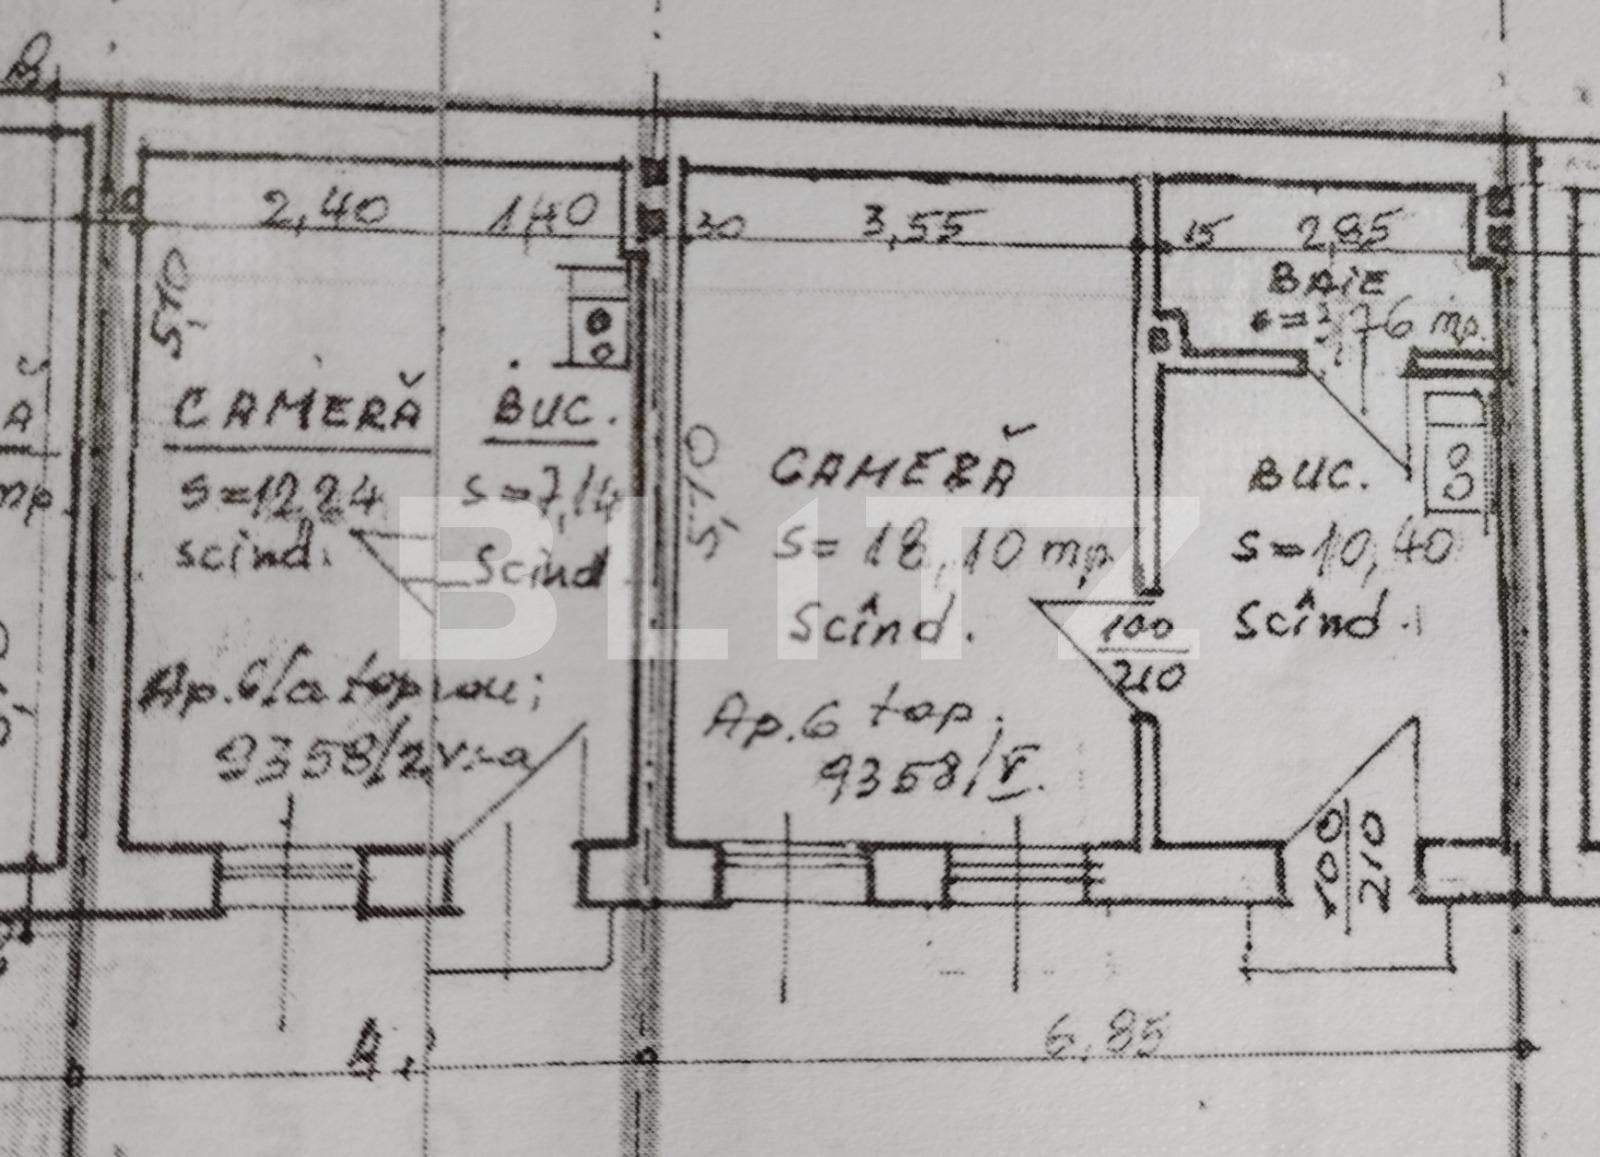 B
2,40
1,40
30
3,55
15
2,85
5,10
BAIE
76 mp.
CAMERĂ
BUC.
s=12,24
s=7,14
scînd.
Scînd
5,10
CAMERĂ
S=18,10 mp
Scînd.
BUC.
S=10,40
Scînd.
mp.
BLITZ
100
210
Ap.6/a top
9358/2
Ap.6 top.
9358/V.
100
210
A
6,85